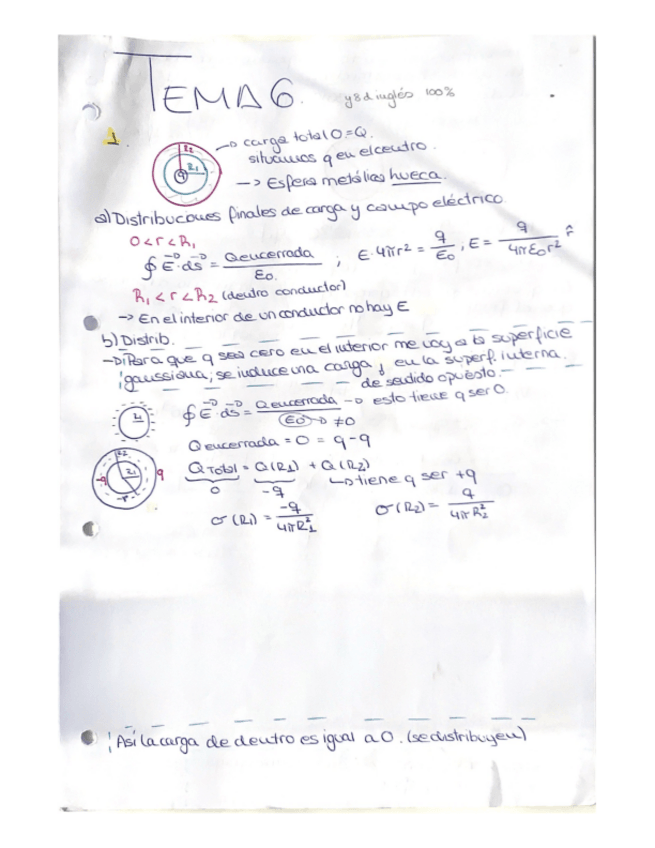 TEMA 6.
y 8 d inglés 100%
1.
R2
R1
q
→ carga total 0=Q.
situamos q en el centro.
→ Esfera metálica hueca.
a) Distribuciones finales de carga y campo eléctrico.
0<r<R1
∮ E·ds = Qencerrada / ε0 ; E·4πr² = q/ε0 , E = q / 4πε0r² r̂
R1<r<R2 (dentro conductor)
→ En el interior de un conductor no hay E
b) Distrib.
→ Para que q sea cero en el interior me voy a la superficie
gaussiana, se induce una carga, en la superf. interna.
de sentido opuesto.
∮ E·ds = Qencerrada / ε0 → ≠0 → esto tiene q ser 0.
Qencerrada = 0 = q-q
QTotal = Q(R1) + Q(R2)
0 -q → tiene q ser +q
σ(R1) = -q / 4πR1² σ(R2) = q / 4πR2²
Así la carga de dentro es igual a 0. (se distribuyen)